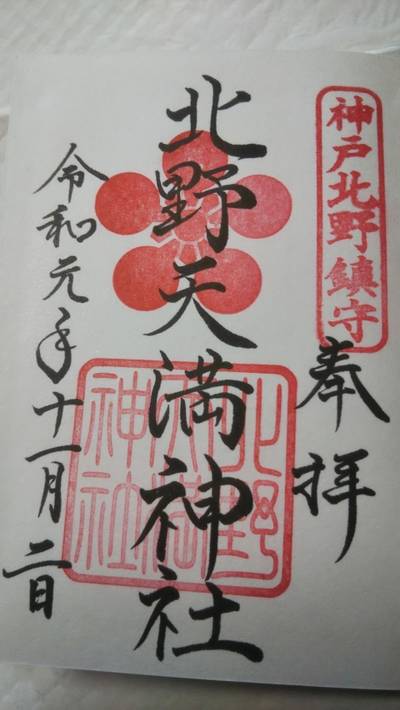 神戸北野鎮守
奉拝
北野天満神社
北野天満神社
令和元年十一月二日